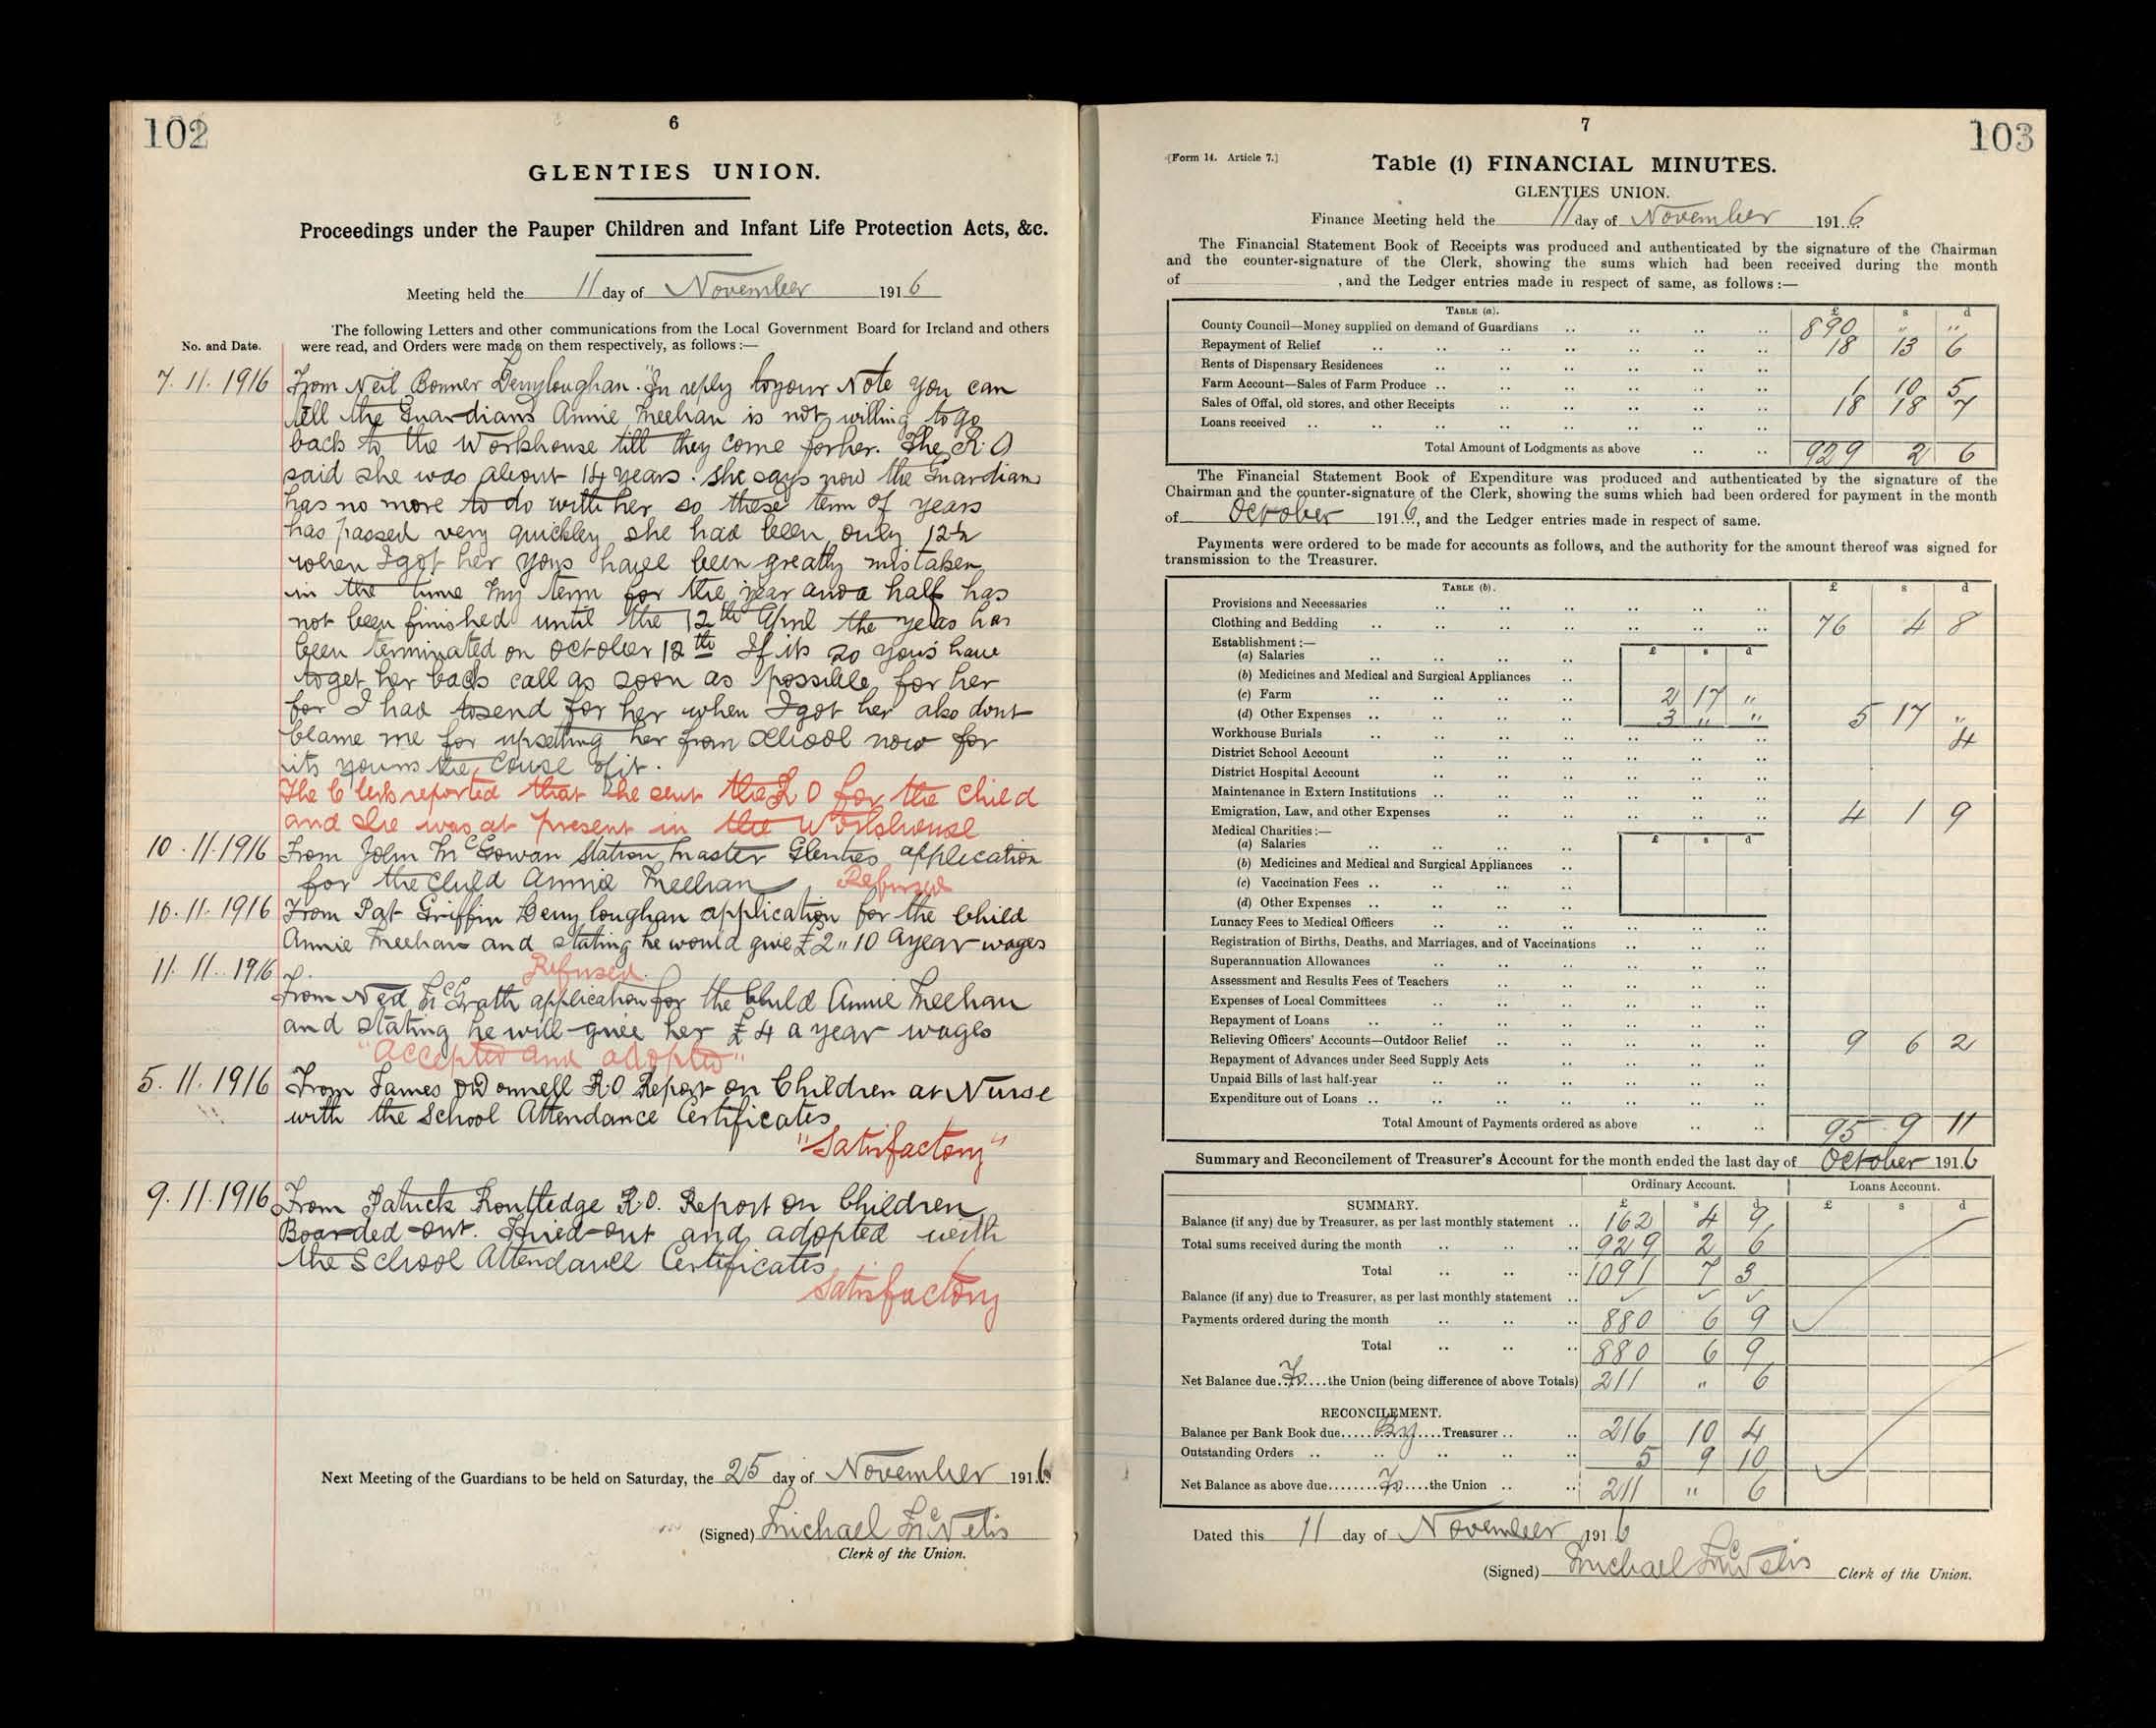 102
6
GLENTIES UNION.
Proceedings under the Pauper Children and Infant Life Protection Acts, &c.
Meeting held the 11 day of November 1916
The following Letters and other communications from the Local Government Board for Ireland and others
No. and Date. were read, and Orders were made on them respectively, as follows :—
7. 11. 1916 From Neil Bonner Derryloughan. "In reply to your Note you can
tell the Guardians Annie Meehan is not willing to go
back to the Workhouse till they come for her. The R.O
said she was about 14 years. she says now the Guardians
has no more to do with her so these term of years
has passed very quickley she had been only 12½
when I got her yous have been greatly mistaken
in the time my term for the year and a half has
not been finished until the 12th April the years has
been terminated on October 12th If its so yous have
to get her back call as soon as possible for her
for I had to send for her when I got her also dont
blame me for upsetting her from school now for
its yours the cause of it.
The Clerk reported that he sent the R O for the child
and she was at present in the Workhouse
10. 11. 1916 From John McGowan Station Master Glenties application
for the child Annie Meehan Refused
10. 11. 1916 From Pat Griffin Derryloughan application for the child
Annie Meehan and stating he would give £2 " 10 a year wages
Refused.
11. 11. 1916 From Ned McGrath application for the child Annie Meehan
and stating he will give her £4 a year wages
"Accepted and adopted"
5. 11. 1916 From James O'Donnell R.O Report on Children at Nurse
with the School Attendance Certificates
"Satisfactory"
9. 11. 1916 From Patrick Routledge R.O. Report on Children
Boarded-out. Hired-out and adopted with
the School Attendance Certificates
Satisfactory
Next Meeting of the Guardians to be held on Saturday, the 25 day of November 1916
(Signed) Michael McNelis
Clerk of the Union.
7
103
(Form 14. Article 7.)
Table (1) FINANCIAL MINUTES.
GLENTIES UNION.
Finance Meeting held the 11 day of November 1916
The Financial Statement Book of Receipts was produced and authenticated by the signature of the Chairman
and the counter-signature of the Clerk, showing the sums which had been received during the month
of , and the Ledger entries made in respect of same, as follows :—
TABLE (a). £ s d
County Council—Money supplied on demand of Guardians 890 " "
Repayment of Relief 18 13 6
Rents of Dispensary Residences
Farm Account—Sales of Farm Produce 1 10 5
Sales of Offal, old stores, and other Receipts 18 18 7
Loans received
Total Amount of Lodgments as above 929 2 6
The Financial Statement Book of Expenditure was produced and authenticated by the signature of the
Chairman and the counter-signature of the Clerk, showing the sums which had been ordered for payment in the month
of October 1916, and the Ledger entries made in respect of same.
Payments were ordered to be made for accounts as follows, and the authority for the amount thereof was signed for
transmission to the Treasurer.
TABLE (b). £ s d
Provisions and Necessaries
Clothing and Bedding 76 4 8
Establishment :— £ s d
(a) Salaries
(b) Medicines and Medical and Surgical Appliances
(c) Farm 2 17 "
(d) Other Expenses 3 " " 5 17 "
Workhouse Burials 4
District School Account
District Hospital Account
Maintenance in Extern Institutions
Emigration, Law, and other Expenses 4 1 9
Medical Charities :— £ s d
(a) Salaries
(b) Medicines and Medical and Surgical Appliances
(c) Vaccination Fees
(d) Other Expenses
Lunacy Fees to Medical Officers
Registration of Births, Deaths, and Marriages, and of Vaccinations
Superannuation Allowances
Assessment and Results Fees of Teachers
Expenses of Local Committees
Repayment of Loans
Relieving Officers' Accounts—Outdoor Relief 9 6 2
Repayment of Advances under Seed Supply Acts
Unpaid Bills of last half-year
Expenditure out of Loans
Total Amount of Payments ordered as above 95 9 11
Summary and Reconcilement of Treasurer's Account for the month ended the last day of October 1916
Ordinary Account. Loans Account.
SUMMARY. £ s d £ s d
Balance (if any) due by Treasurer, as per last monthly statement 162 4 9
Total sums received during the month 929 2 6
Total 1091 7 3
Balance (if any) due to Treasurer, as per last monthly statement
Payments ordered during the month 880 6 9
Total 880 6 9
Net Balance due To the Union (being difference of above Totals) 211 " 6
RECONCILEMENT.
Balance per Bank Book due By Treasurer 216 10 4
Outstanding Orders 5 9 10
Net Balance as above due To the Union 211 " 6
Dated this 11 day of November 1916
(Signed) Michael McNelis Clerk of the Union.